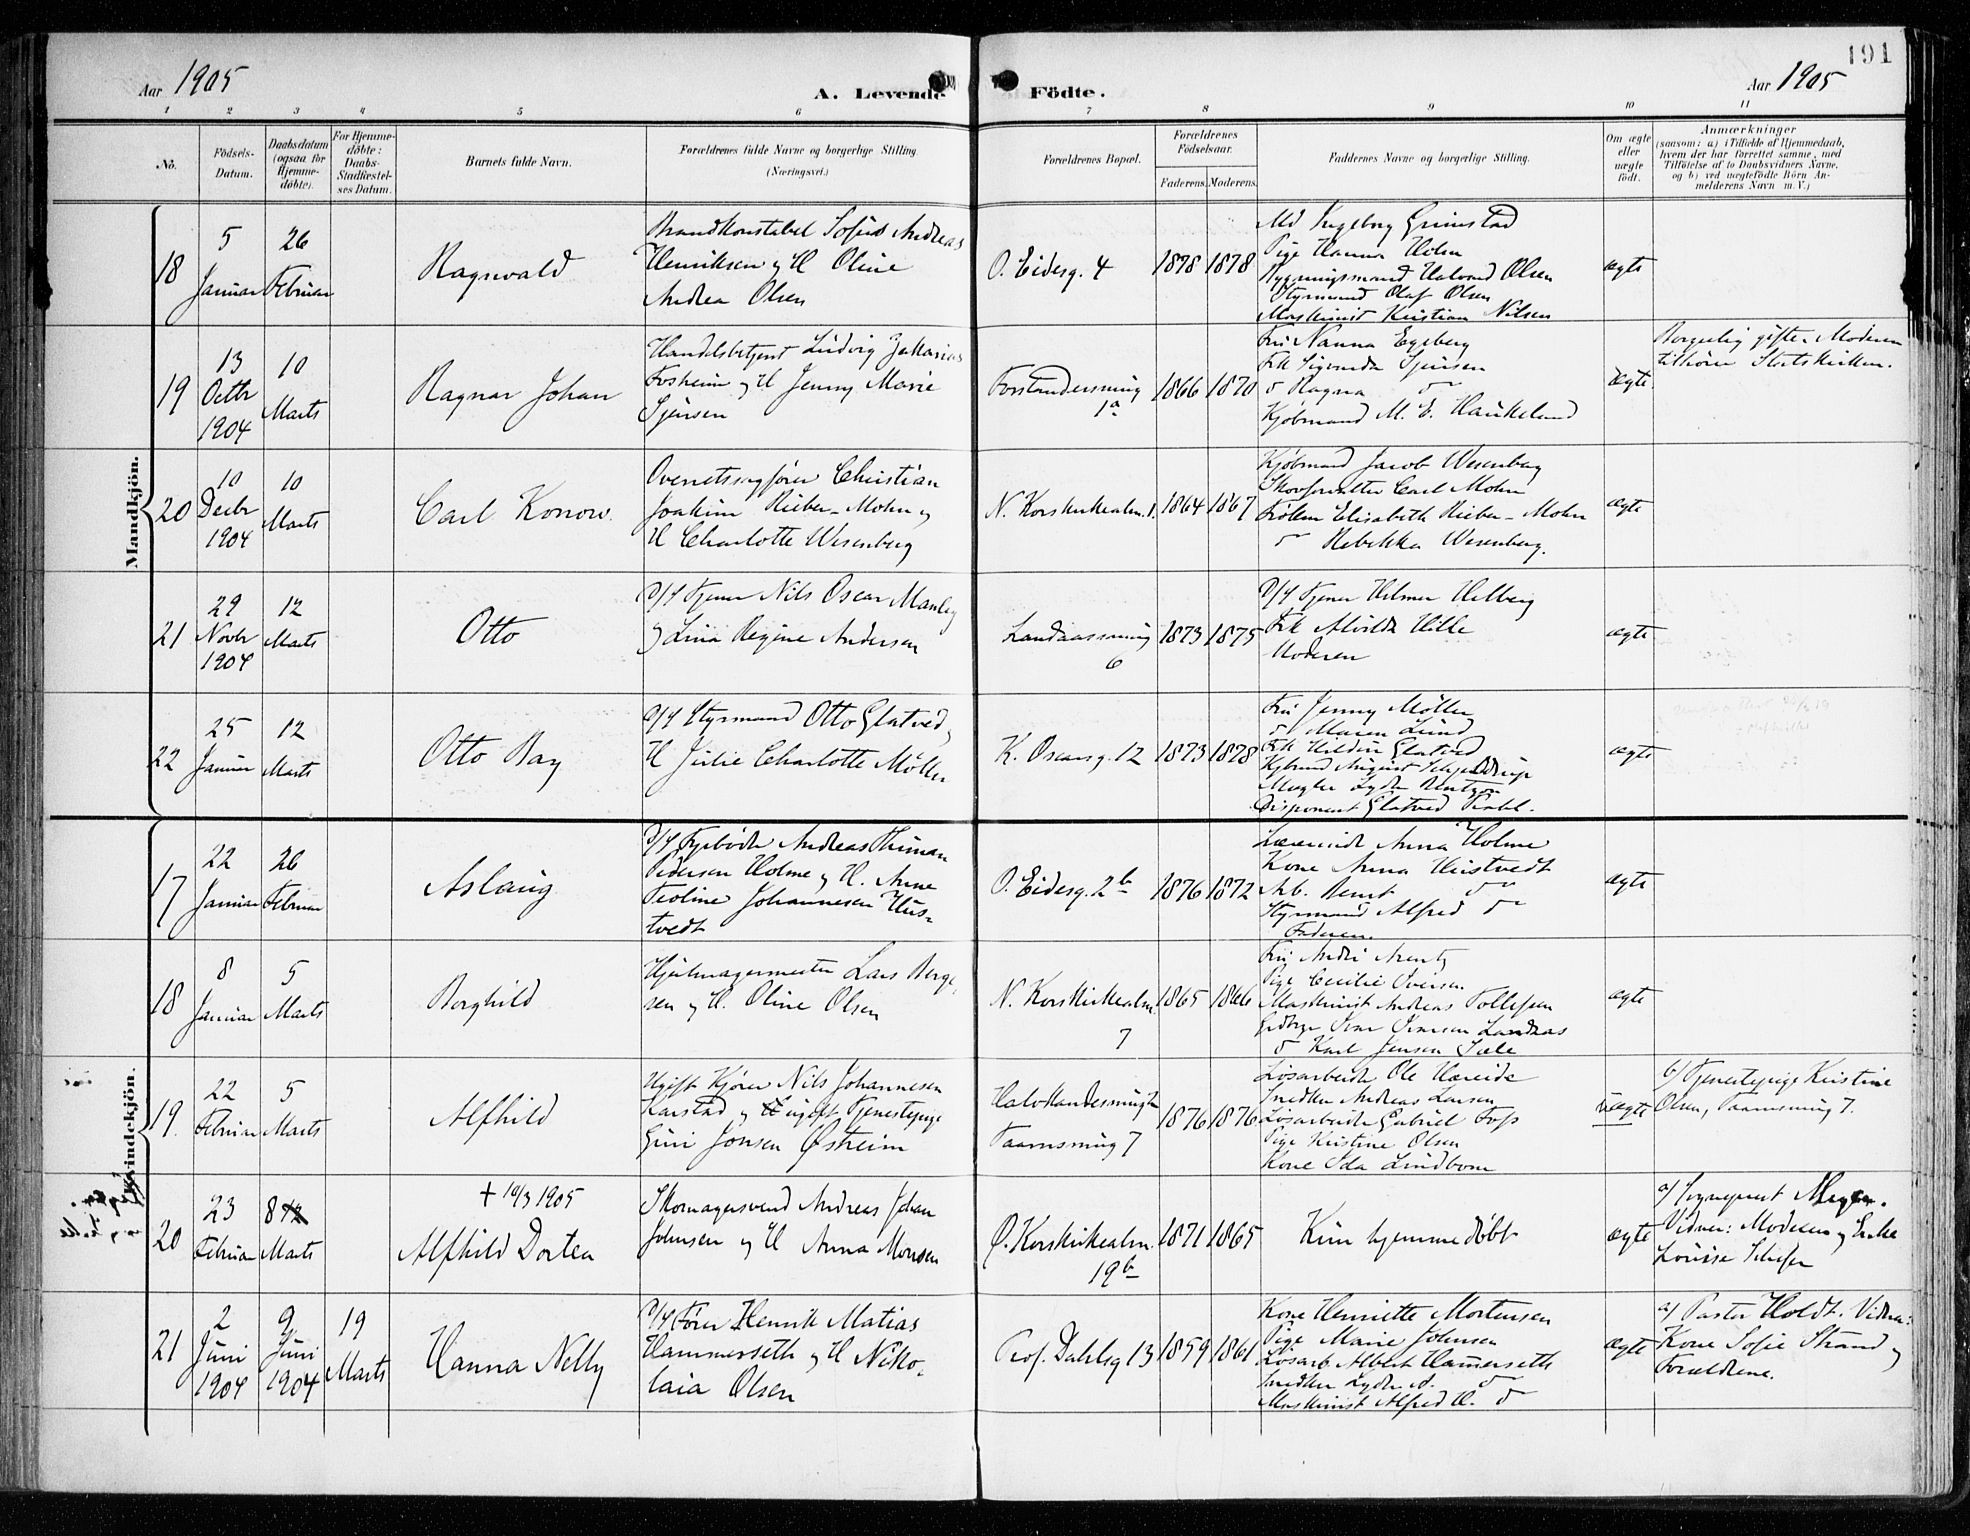 Aar 1905
A. Levende Födte.
Aar 1905
191
1 2 3 4 5 6 7 8 9 10 11
No.
Födsels-Datum.
Daabsdatum (ogsaa for Hjemme-döbte).
For Hjemme-döbte: Daabs-Stadfæstel-ses Datum.
Barnets fulde Navn.
Forældrenes fulde Navne og borgerlige Stilling. (Næringsvei.)
Forældrenes Bopæl.
Forældrenes Födselsaar.
Faderens. Moderens.
Faddernes Navne og borgerlige Stilling.
Om ægte eller uægte födt.
Anmærkninger
(saasom: a) i Tilfælde af Hjemmedaab,
hvem der har forrettet samme, med
Tilföielse af to Daabsvidners Navne,
og b) ved uægtefödte Börn An-
melderens Navn m. V.)
Mandkjön.
18
5 Januar
26 Februar
Ragnvald
Brandkonstabel Sofus Andreas
Henriksen og H Oline
Andrea Olsen
O. Eidesg. 4
1878 1878
Md Ingeborg Grimstad
Pige Hanna Holm
Bygningsmand Halvard Olsen
Styrmand Olaf Olsen
Maskinist Kristian Nilsen
ægte
19
13 Octbr 1904
10 Marts
Ragnar Johan
Handelsbetjent Ludvig Zakarias
Fosheim og H Jenny Marie
Sjursen
Forstandersmug 1a
1866 1870
Fru Nanna Egeberg
Frk Sjursen
Ragna
Kjöbmand M. E. Haukeland
ægte
Borgerlig gifte. Moderen
tilhörer Statskirken.
20
10 Decbr 1904
10 Marts
Carl Konow.
Overretssagförer Christian
Joakim Rieber-Mohn og
H Charlotte Wesenberg
N. Korskirkealm. 1.
1864 1867
Kjöbmand Jacob Wesenberg
Skovforvalter Carl Mohn
Frøken Elisabeth Rieber-Mohn
Rebekka Wesenberg.
ægte
21
29 Novbr 1904
12 Marts
Otto
D/S Tjener Nils Oscar Manley
og Lina Regine Andersen
Landaassmug 6
1873 1875
D/S Tjener Hilmer Helberg
Frk Alvilda Hille
Moderen
ægte
22
25 Januar
12 Marts
Otto Bay
D/S Styrmand Otto Glatved,
H Julie Charlotte Möller
K. Oscarsg. 12
1873 1878
Fru Jenny Möller
Maren Lund
Frk Glatved
Mægler Lyder
Disponent Glatved
ægte
Kvindekjön.
17
22 Januar
26 Februar
Aslaug
D/S Fyrböder Andreas
Pedersen Holme og H. Anne
Johannesen Hus-
tvedt
O. Eidesg. 2b
1876 1872
Anna Holme
Kone Anna Hustvedt
Arb. Bernt
Styrmand Alfred
Faderen.
ægte
18
8 Januar
5 Marts
Borghild
Hjulmagermester Lars Berge-
sen og H. Oline Olsen
N. Korskirkealm. 7
1865 1866
Pige Cecilie Iversen
Maskinist Andreas Tollefsen
Karl Jensen Sæle
ægte
19.
22 Februar
5 Marts
Alfhild
Ugift Kjører Nils Johannesen
Karstad og ugift Tjenestepige
Guri Jonsen Østreim
Taarnsmug 7
1876 1876
Løsarbeider Ole Hareide
Snedker Andreas Larsen
Løsarbeider Gabriel Foss
Pige Kristine Olsen
Kone Ida Lindbom
uægte
b) Tjenestepige Kristine
Olsen, Taarnsmug 7.
20
23 Februar
8 Marts
+ 10/3 1905
Alfhild Dortea
Skomagersvend Andreas Johan
Johnsen og H Anna Monsen
Ø. Korskirkealm. 19b
1871 1865
Kun hjemmedøbt
ægte
a) Sogneprest
Vidner: Moderen og Enke
Louise
21
2 Juni 1904
9 Juni 1904
19 Marts
Hanna Nelly
D/S Fører Henrik Matias
Hammerseth og H Niko-
laia Olsen
Prof. Dahlsg 13
1859 1861
Kone Henriette Mortensen
Pige Marie Johnsen
Løsarb Albert Hammerseth
Snedker Lyder A.
Maskinist Alfred H.
ægte
a) Pastor Holdt. Vidner:
Kone Sofie Strand og
Forældrene.